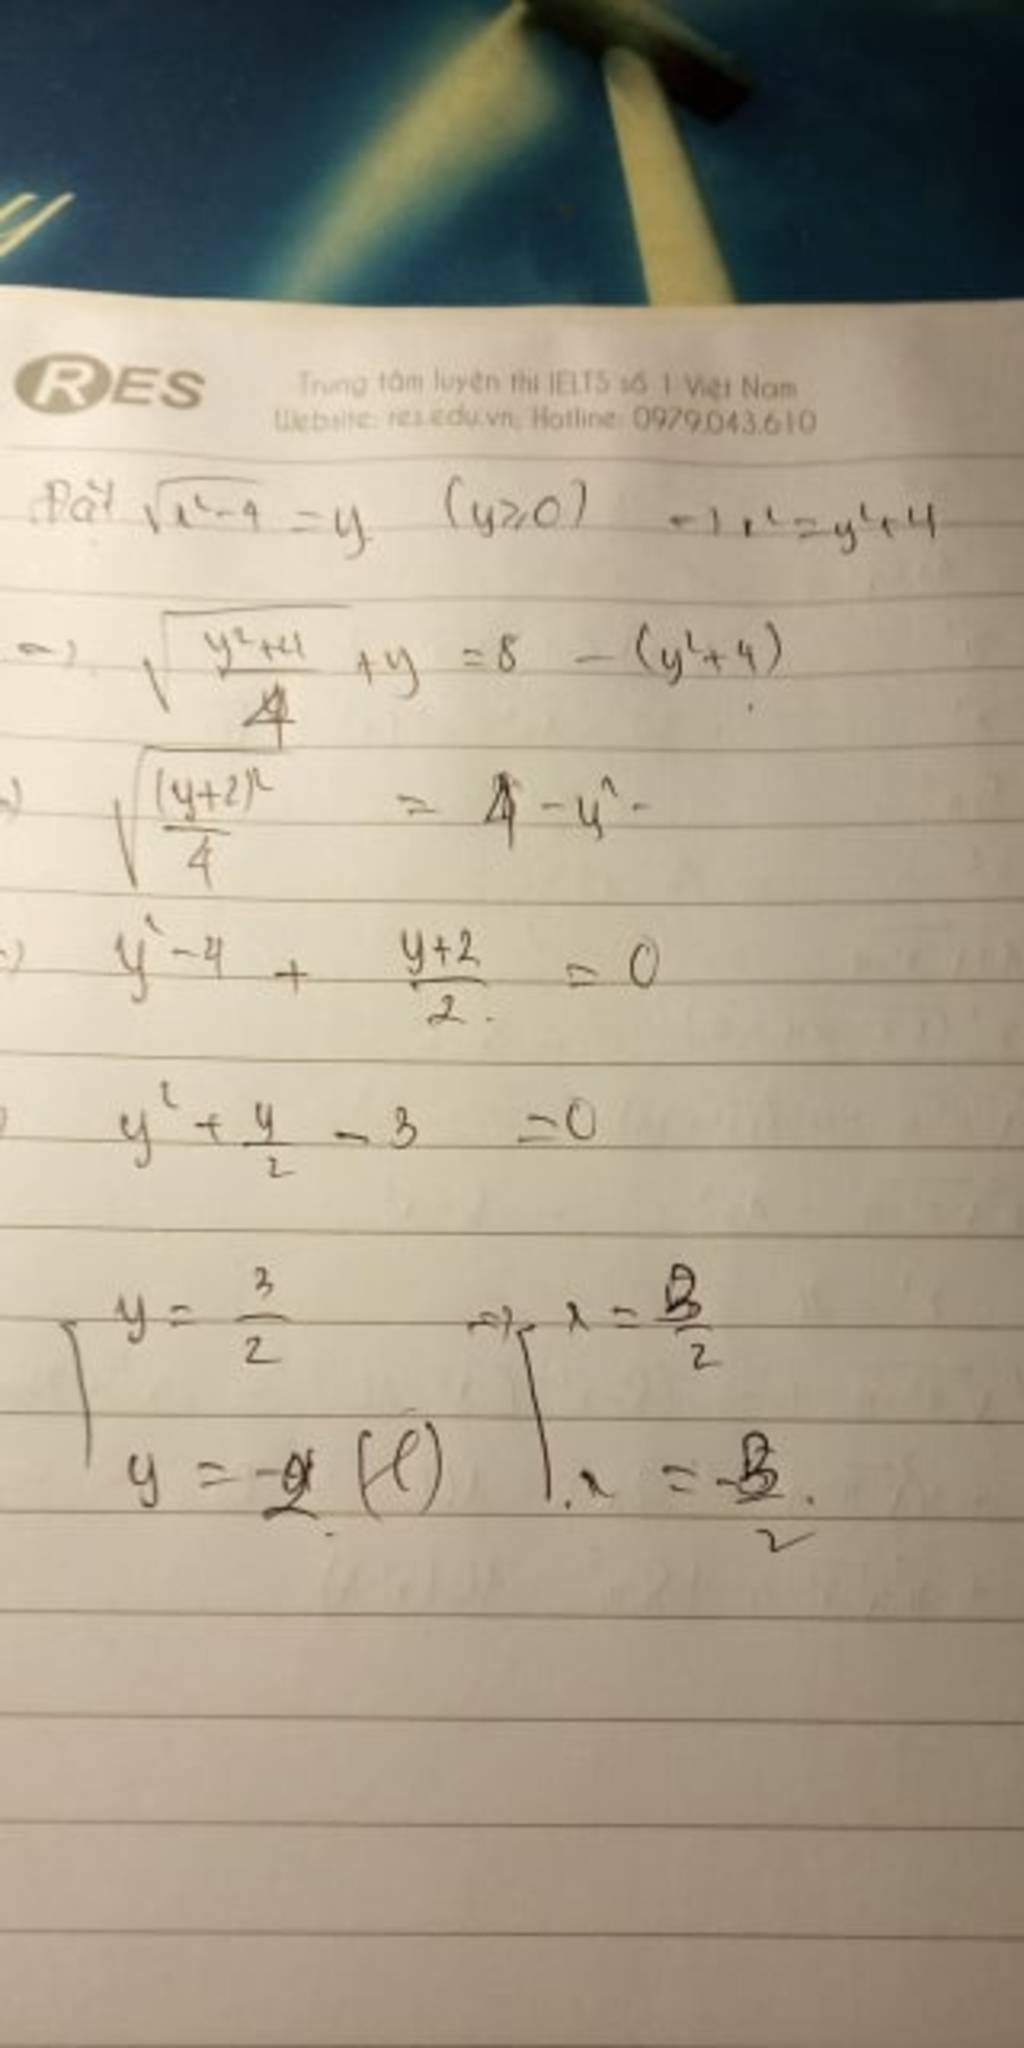 y
RES
Trung tâm luyện thi IELTS số 1 Việt Nam
Website: res.edu.vn, Hotline: 0979.043.610
Đặt √(x²-4) = y (y≥0) => x² = y²+4
=> √((y²+4)/4 + y) = 8 - (y²+4)
=> √((y+2)²/4) = 4 - y²
=> y²-4 + (y+2)/2 = 0
y² + y/2 - 3 = 0
y = 3/2 => x =
y = -2 (l) x =